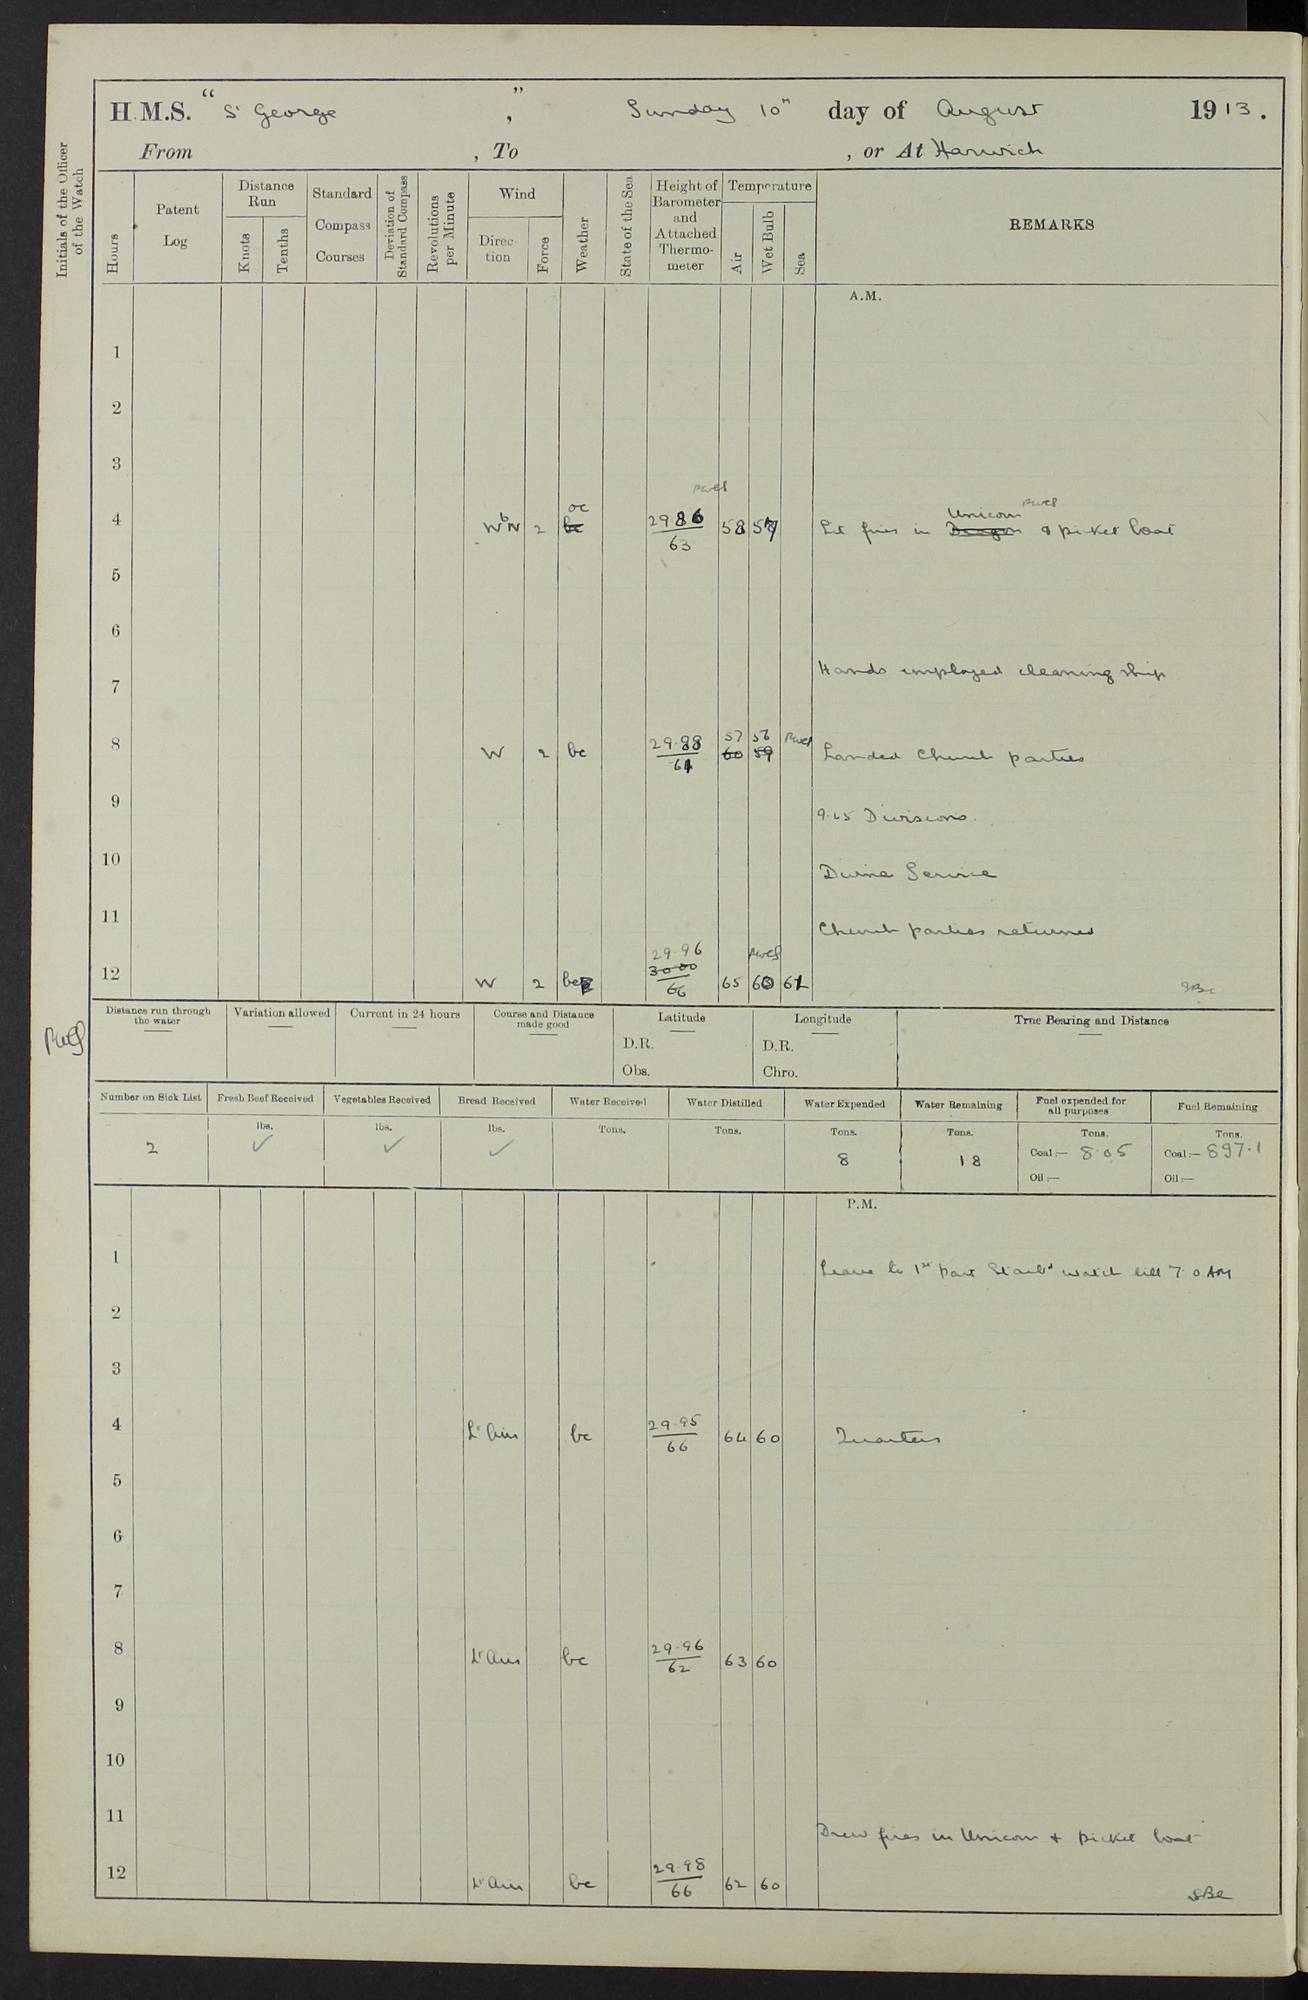 H.M.S. "St George", Sunday 10th day of August 1913.
From , To , or At Harwich
Initials of the Officer of the Watch
Hours
Patent Log
Distance Run
Knots
Tenths
Standard Compass Courses
Deviation of Standard Compass
Revolutions per Minute
Wind
Direction
Force
Weather
State of the Sea
Height of Barometer and Attached Thermometer
Temperature
Air
Wet Bulb
Sea
REMARKS
A.M.
1
2
3
4 WbN 2 oc bc 29 86 63 58 57 Lit fires in Unicorn Dragon & picket boat
5
6
Hands employed cleaning ship
7
57 56
8 W 2 bc 29.88 61 60 59 Landed Church parties
9 9.15 Divisions.
10 Divine Service
11 Church parties returned
29.96
30 00
12 W 2 bc 66 65 60 61
Distance run through the water
Variation allowed
Current in 24 hours
Course and Distance made good
Latitude
D.R.
Obs.
Longitude
D.R.
Chro.
True Bearing and Distance
Number on Sick List
Fresh Beef Received
Vegetables Received
Bread Received
Water Received
Water Distilled
Water Expended
Water Remaining
Fuel expended for all purposes
Fuel Remaining
lbs. lbs. lbs. Tons. Tons. Tons. Tons. Tons. Tons.
2 ✓ ✓ ✓ 8 18 Coal:— 8.05 Coal:— 897.1
Oil:— Oil:—
P.M.
1 Leave to 1st part Starbd watch till 7.0 AM
2
3
4 Lt Airs bc 29.95 66 64 60 Quarters
5
6
7
8 Lt Airs bc 29.96 62 63 60
9
10
11
Drew fires in Unicorn & picket boat
12 Lt Airs bc 29.98 66 62 60